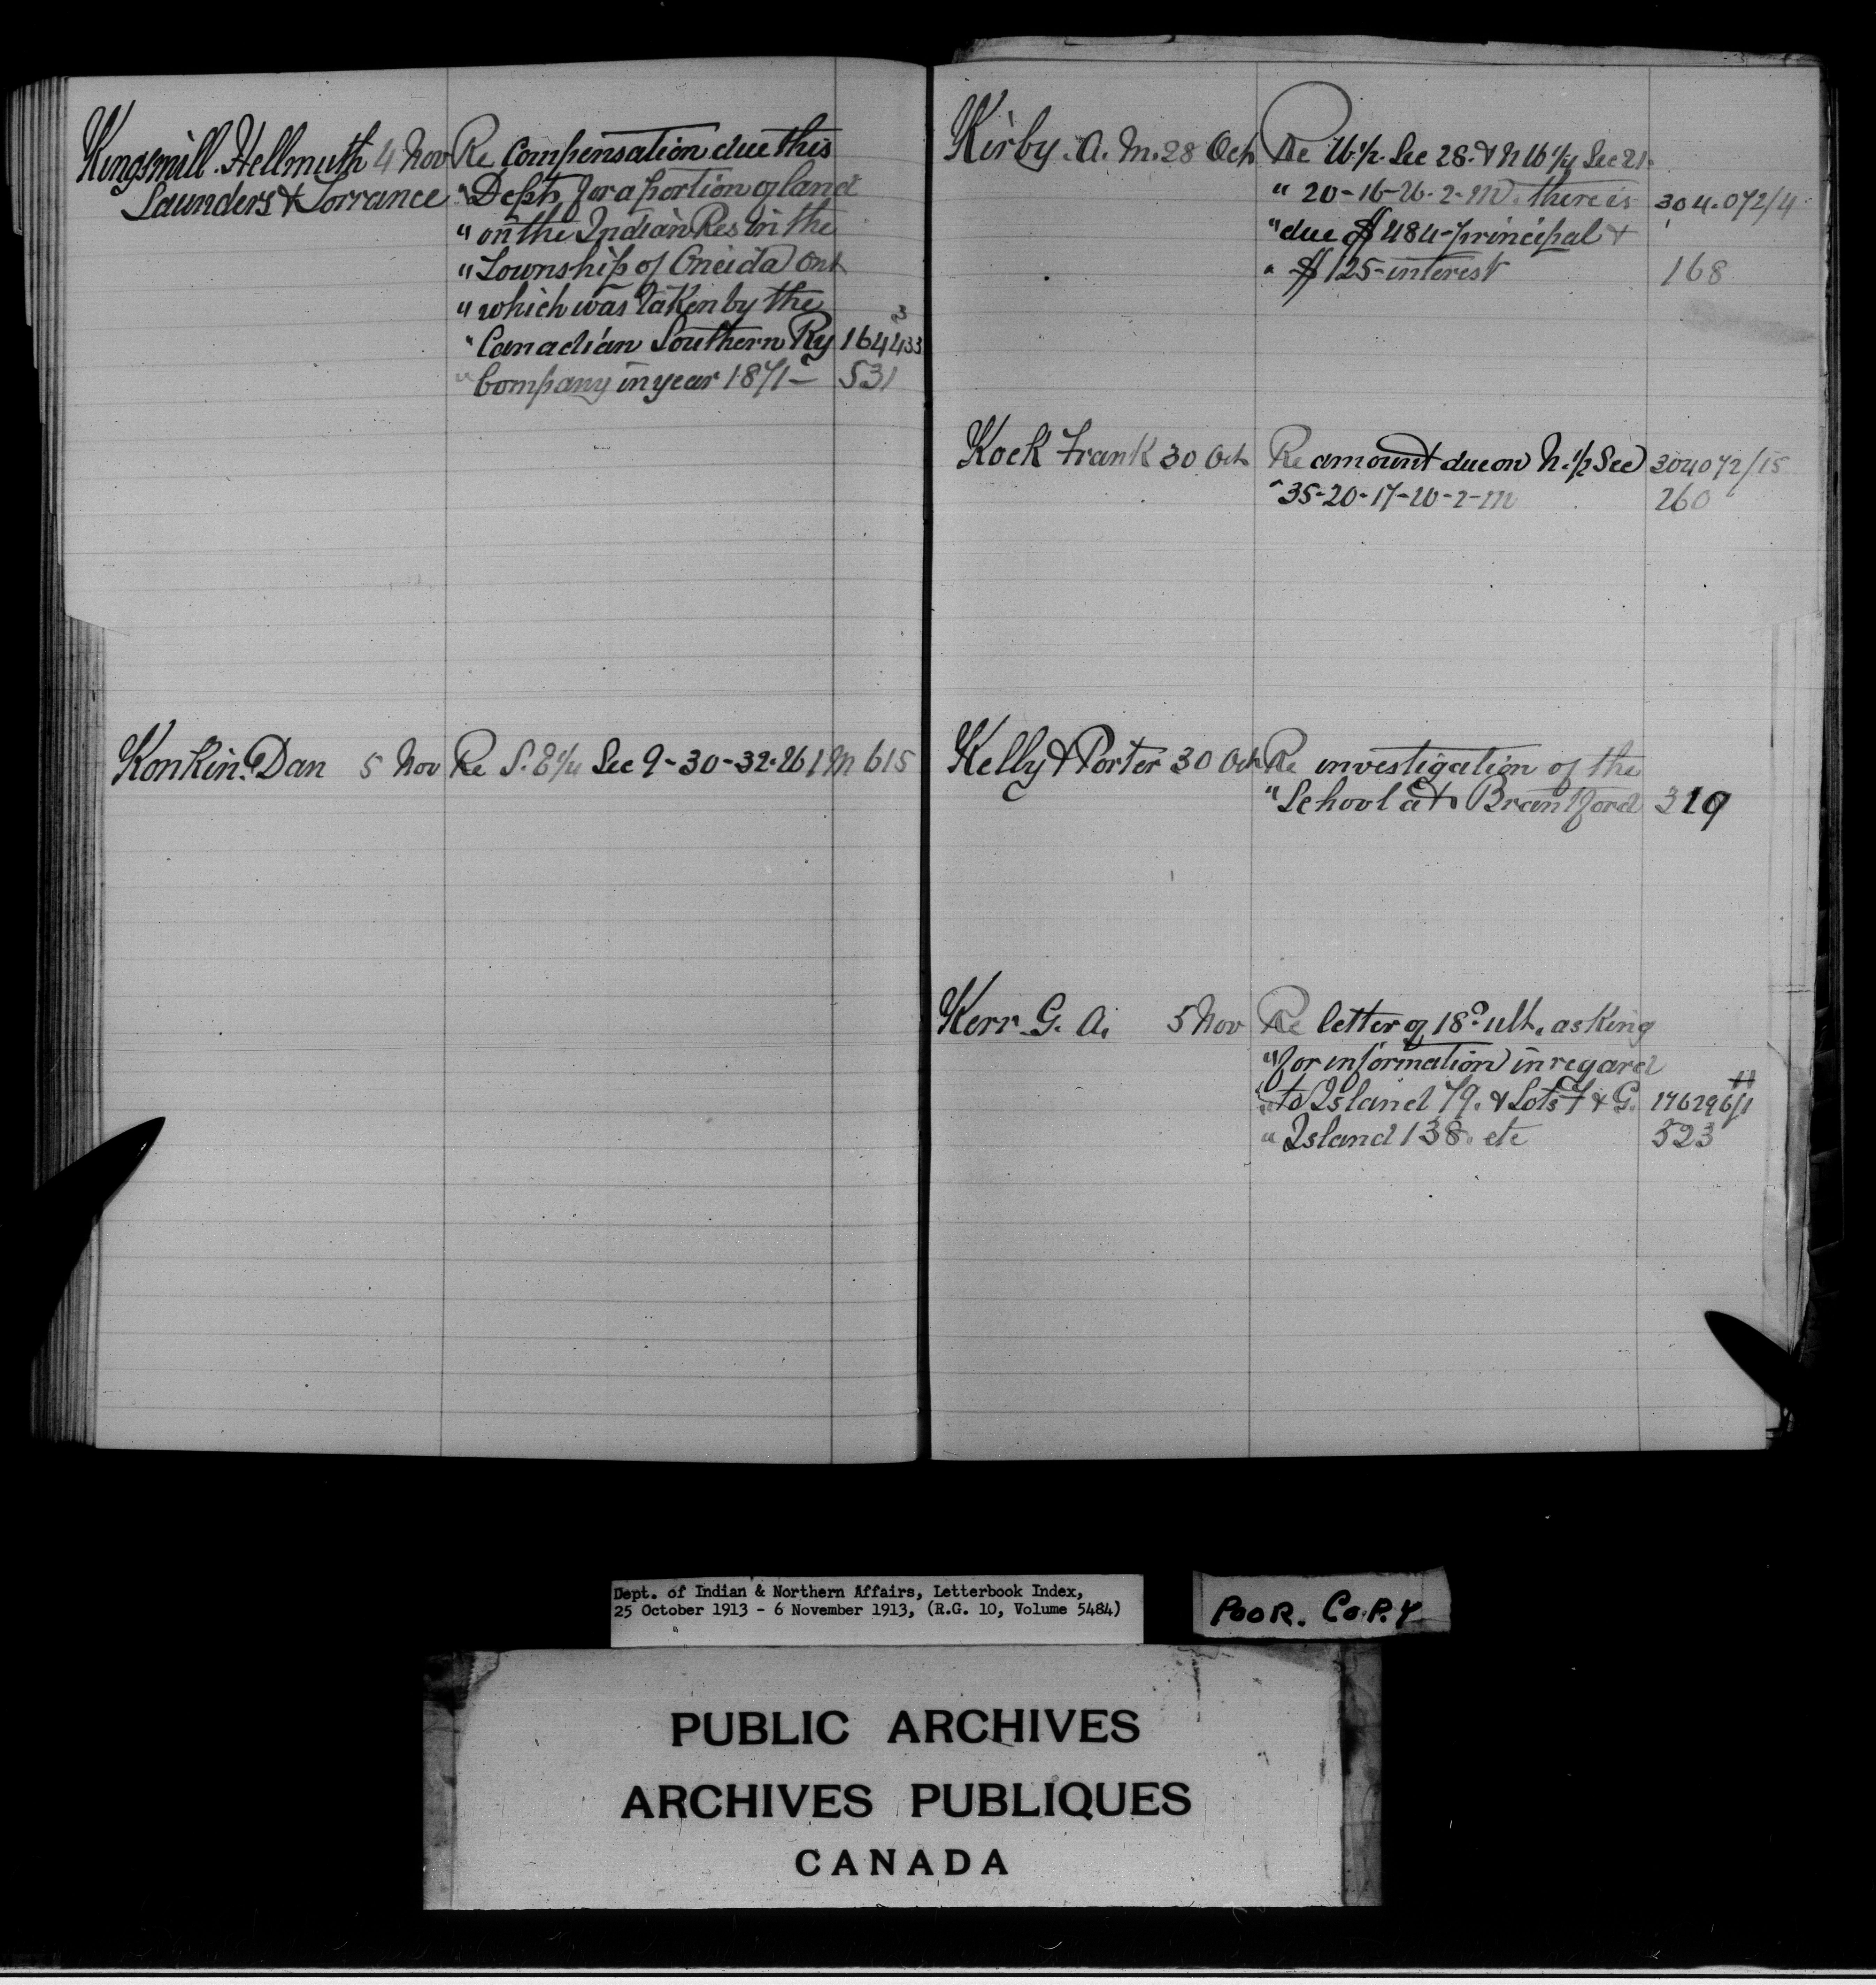 Kingsmill. Hellmuth 4 Nov Re Compensation due this
Saunders & Torrance " Dept. for a portion of land
" on the Indian Res in the
" Township of Oneida Ont
" which was taken by the
" Canadian Southern Ry 164433
" Company in year 1871- 531
Konkin. Dan 5 Nov Re S. E 1/4 Sec 9-30-32-W 1 M 615
Kirby. A. M. 28 Oct Re W. 1/2. Sec 28. & N W 1/4 Sec 21.
" 20-16-W. 2-M. there is 304.072/4
" due $484- principal &
" $125- interest 168
Kock Frank 30 Oct Re amount due on N. 1/2 Sec 304072/15
" 35-20-17-W-2-M 260
Kelly & Porter 30 Oct Re investigation of the
" School at Brantford 319
Kerr G. A. 5 Nov Re letter of 18 ult. asking
" for information in regard
" to Island 79. & Lots F & G. 176296/1
" Island 138. etc 523
Dept. of Indian & Northern Affairs, Letterbook Index,
25 October 1913 - 6 November 1913, (R.G. 10, Volume 5484)
POOR. COPY
PUBLIC ARCHIVES
ARCHIVES PUBLIQUES
CANADA